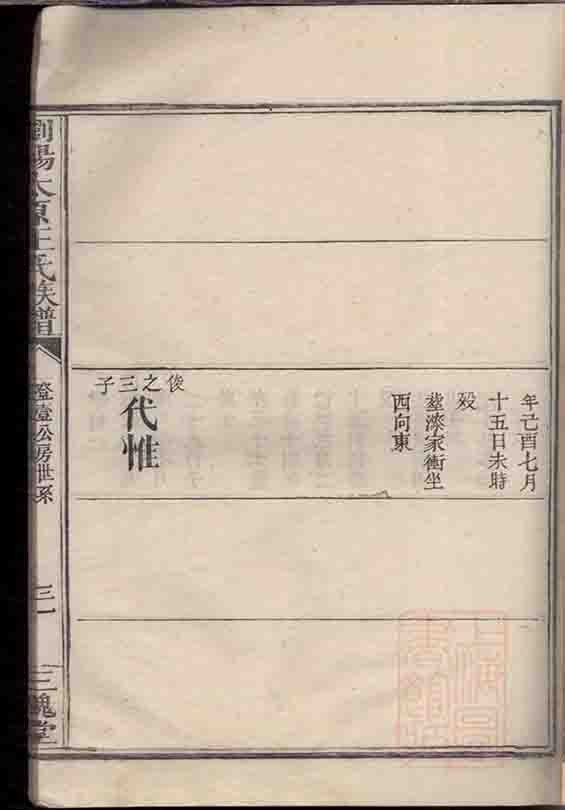 年己酉七月
十五日未時
殁
塟漆家衝坐
西向東
俊之三子
代惟
劉陽太原王氏族譜
登壹公房世系
三一
三槐堂